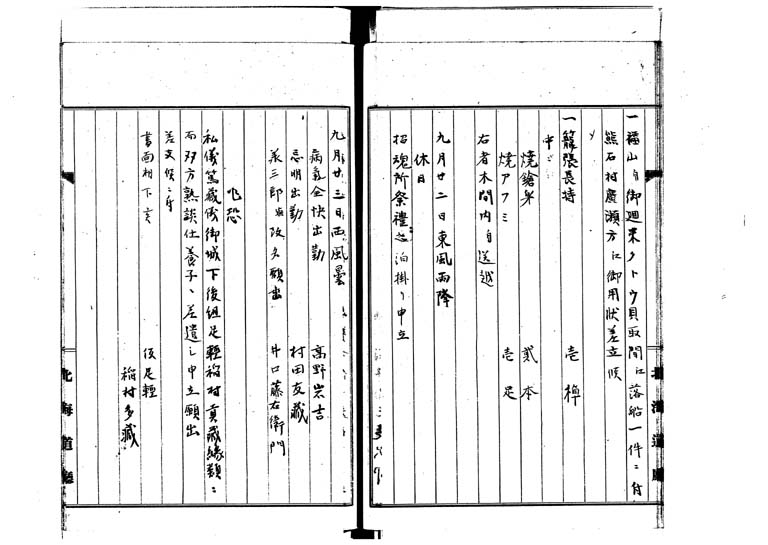 一福山ゟ御廻米クトウ貝取間ニ落船一件ニ付
熊石村廣瀬方ニ御用状差立候
〆
一籏張長持 壱棹
中ニ
焼鎗 弐本
焼アフミ 壱足
右者木間内ゟ送越
九月廿二日東風雨降
休日
招魂所祭禮ニ泊掛リ申立
北海道廳
九月廿三日西風曇
病気全快出勤 高野岩吉
忌明出勤 村田友藏
義三郎改名願出 井口藤右衛門
乍恐
私儀篤藏儀御城下後組足輕稲村貞藏縁類ニ
而双方熟談仕養子ニ差遣シ申立願出
差支候ニ付
書面相下ケ 役足輕
稲村多藏
北海道廳